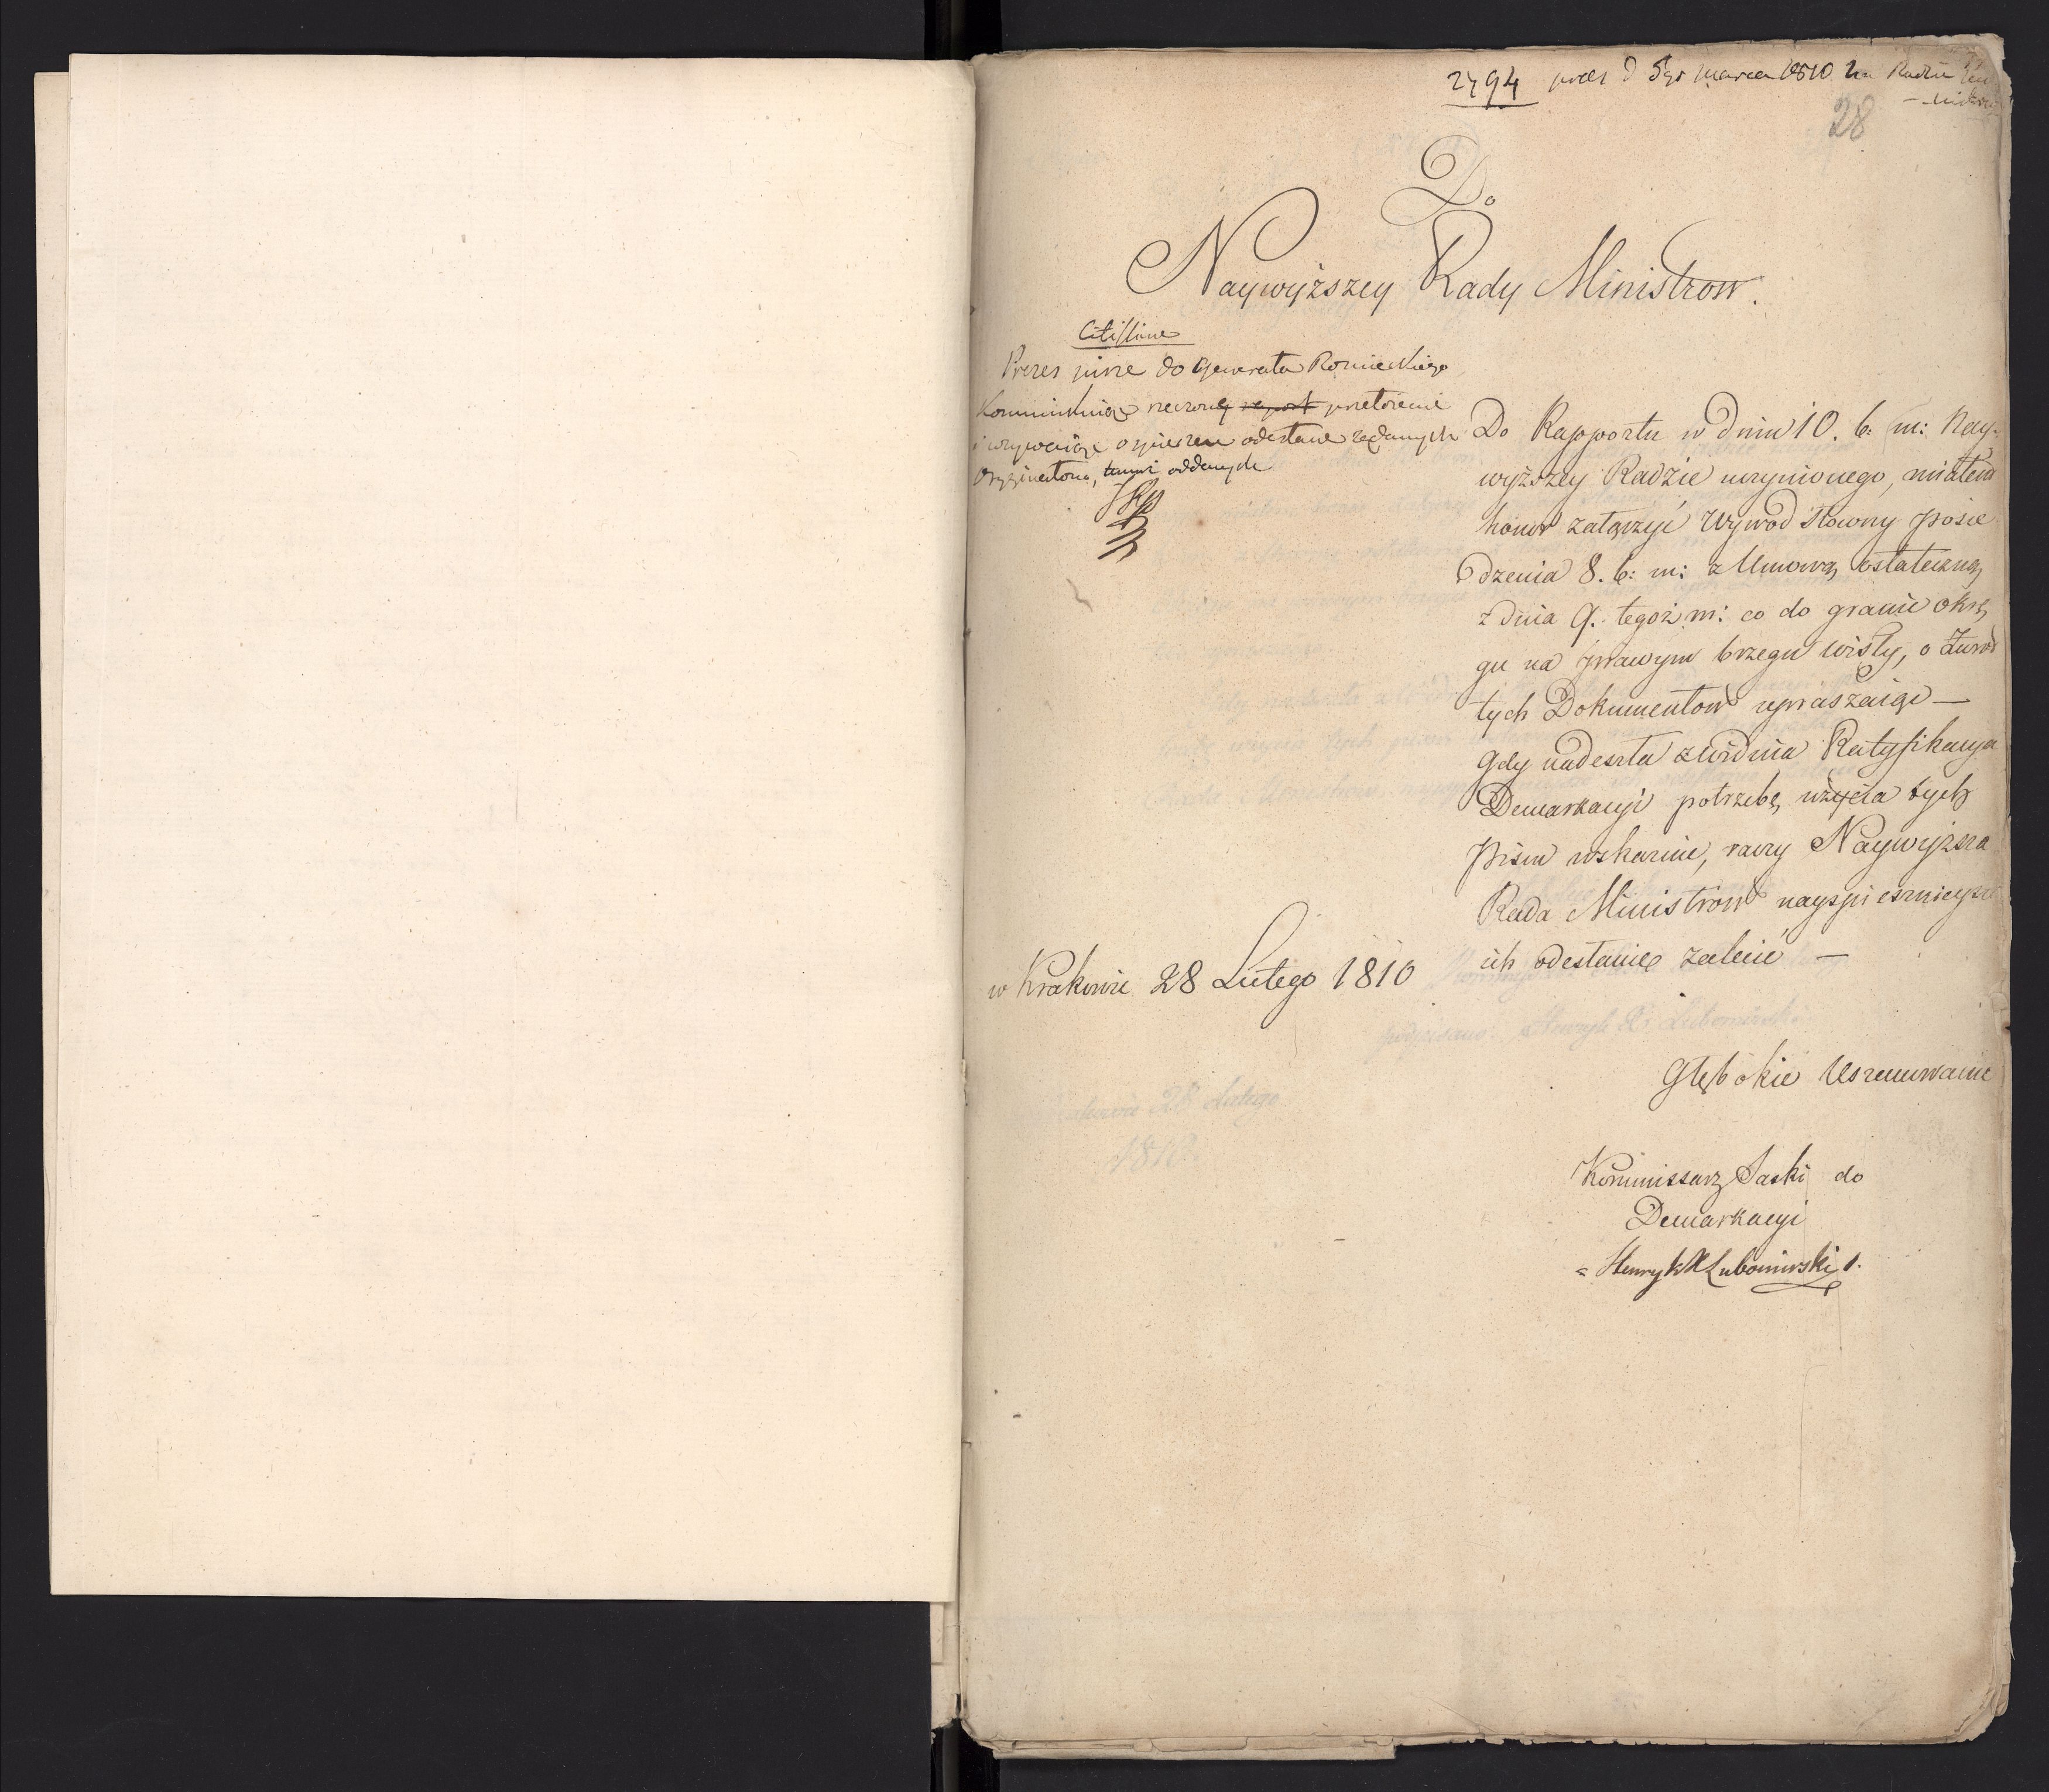 2794 prez d 5go marca 1810 na Radzie
28
Do
Naywyższey Rady Ministrow.
Citissime
Prezes pisze do Generała Roznieckiego
kommunikuiąc rzeczoną report przełożenie
i wzywaiąc o spieszne odesłanie żądanych
Oryginałow, oddanych
Do Rapportu w dniu 10. b: m: Nay-
wyższey Radzie uczynionego, miałem
honor załączyć Wywod Słowny posie
dzenia 8. b: m: z Umową ostateczną
z dnia 9. tegoż m: co do granic okrę
gu na prawym brzegu Wisły, o zwrot
tych Dokumentow upraszaiąc —
Gdy nadeszła z Widnia Ratyfikacya
Demarkacyi potrzebę użycia tych
Pism wskazuie, raczy Naywyższa
Rada Ministrow nayspieszniejsze
ich odesłanie zalecić —
w Krakowie 28 Lutego 1810
Głębokie Uszanowanie
Kommissarz Saski do
Demarkacyi
Henryk X Lubomirski